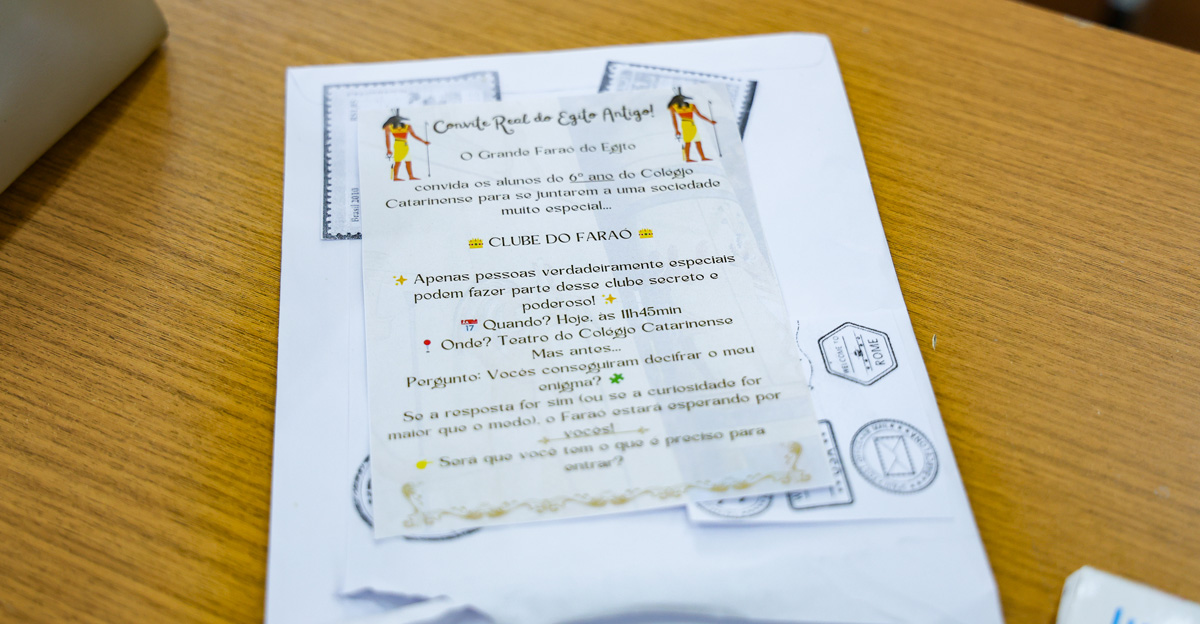 Convite Real do Egito Antigo!
O Grande Faraó do Egito
convida os alunos do 6º ano do Colégio
Catarinense para se juntarem a uma sociedade
muito especial...
CLUBE DO FARAÓ
Apenas pessoas verdadeiramente especiais
podem fazer parte desse clube secreto e
poderoso!
17 Quando? Hoje, às 11h45min
Onde? Teatro do Colégio Catarinense
Mas antes...
Pergunto: Vocês conseguiram decifrar o meu
enigma?
Se a resposta for sim (ou se a curiosidade for
maior que o medo), o Faraó estará esperando por
vocês!
Será que você tem o que é preciso para
entrar?
Brasil 2010
WELCOME TO
ROME